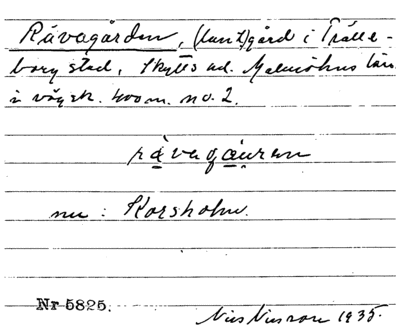 Råvagården, (lant)gård i Trälle-
borg stad, Skytts hd. Malmöhus län
i vägsk. 400 m. n.o. 2.
råvagåuren
nu: Korsholm.
Nr 5825.
Nils Nilsson 1935.